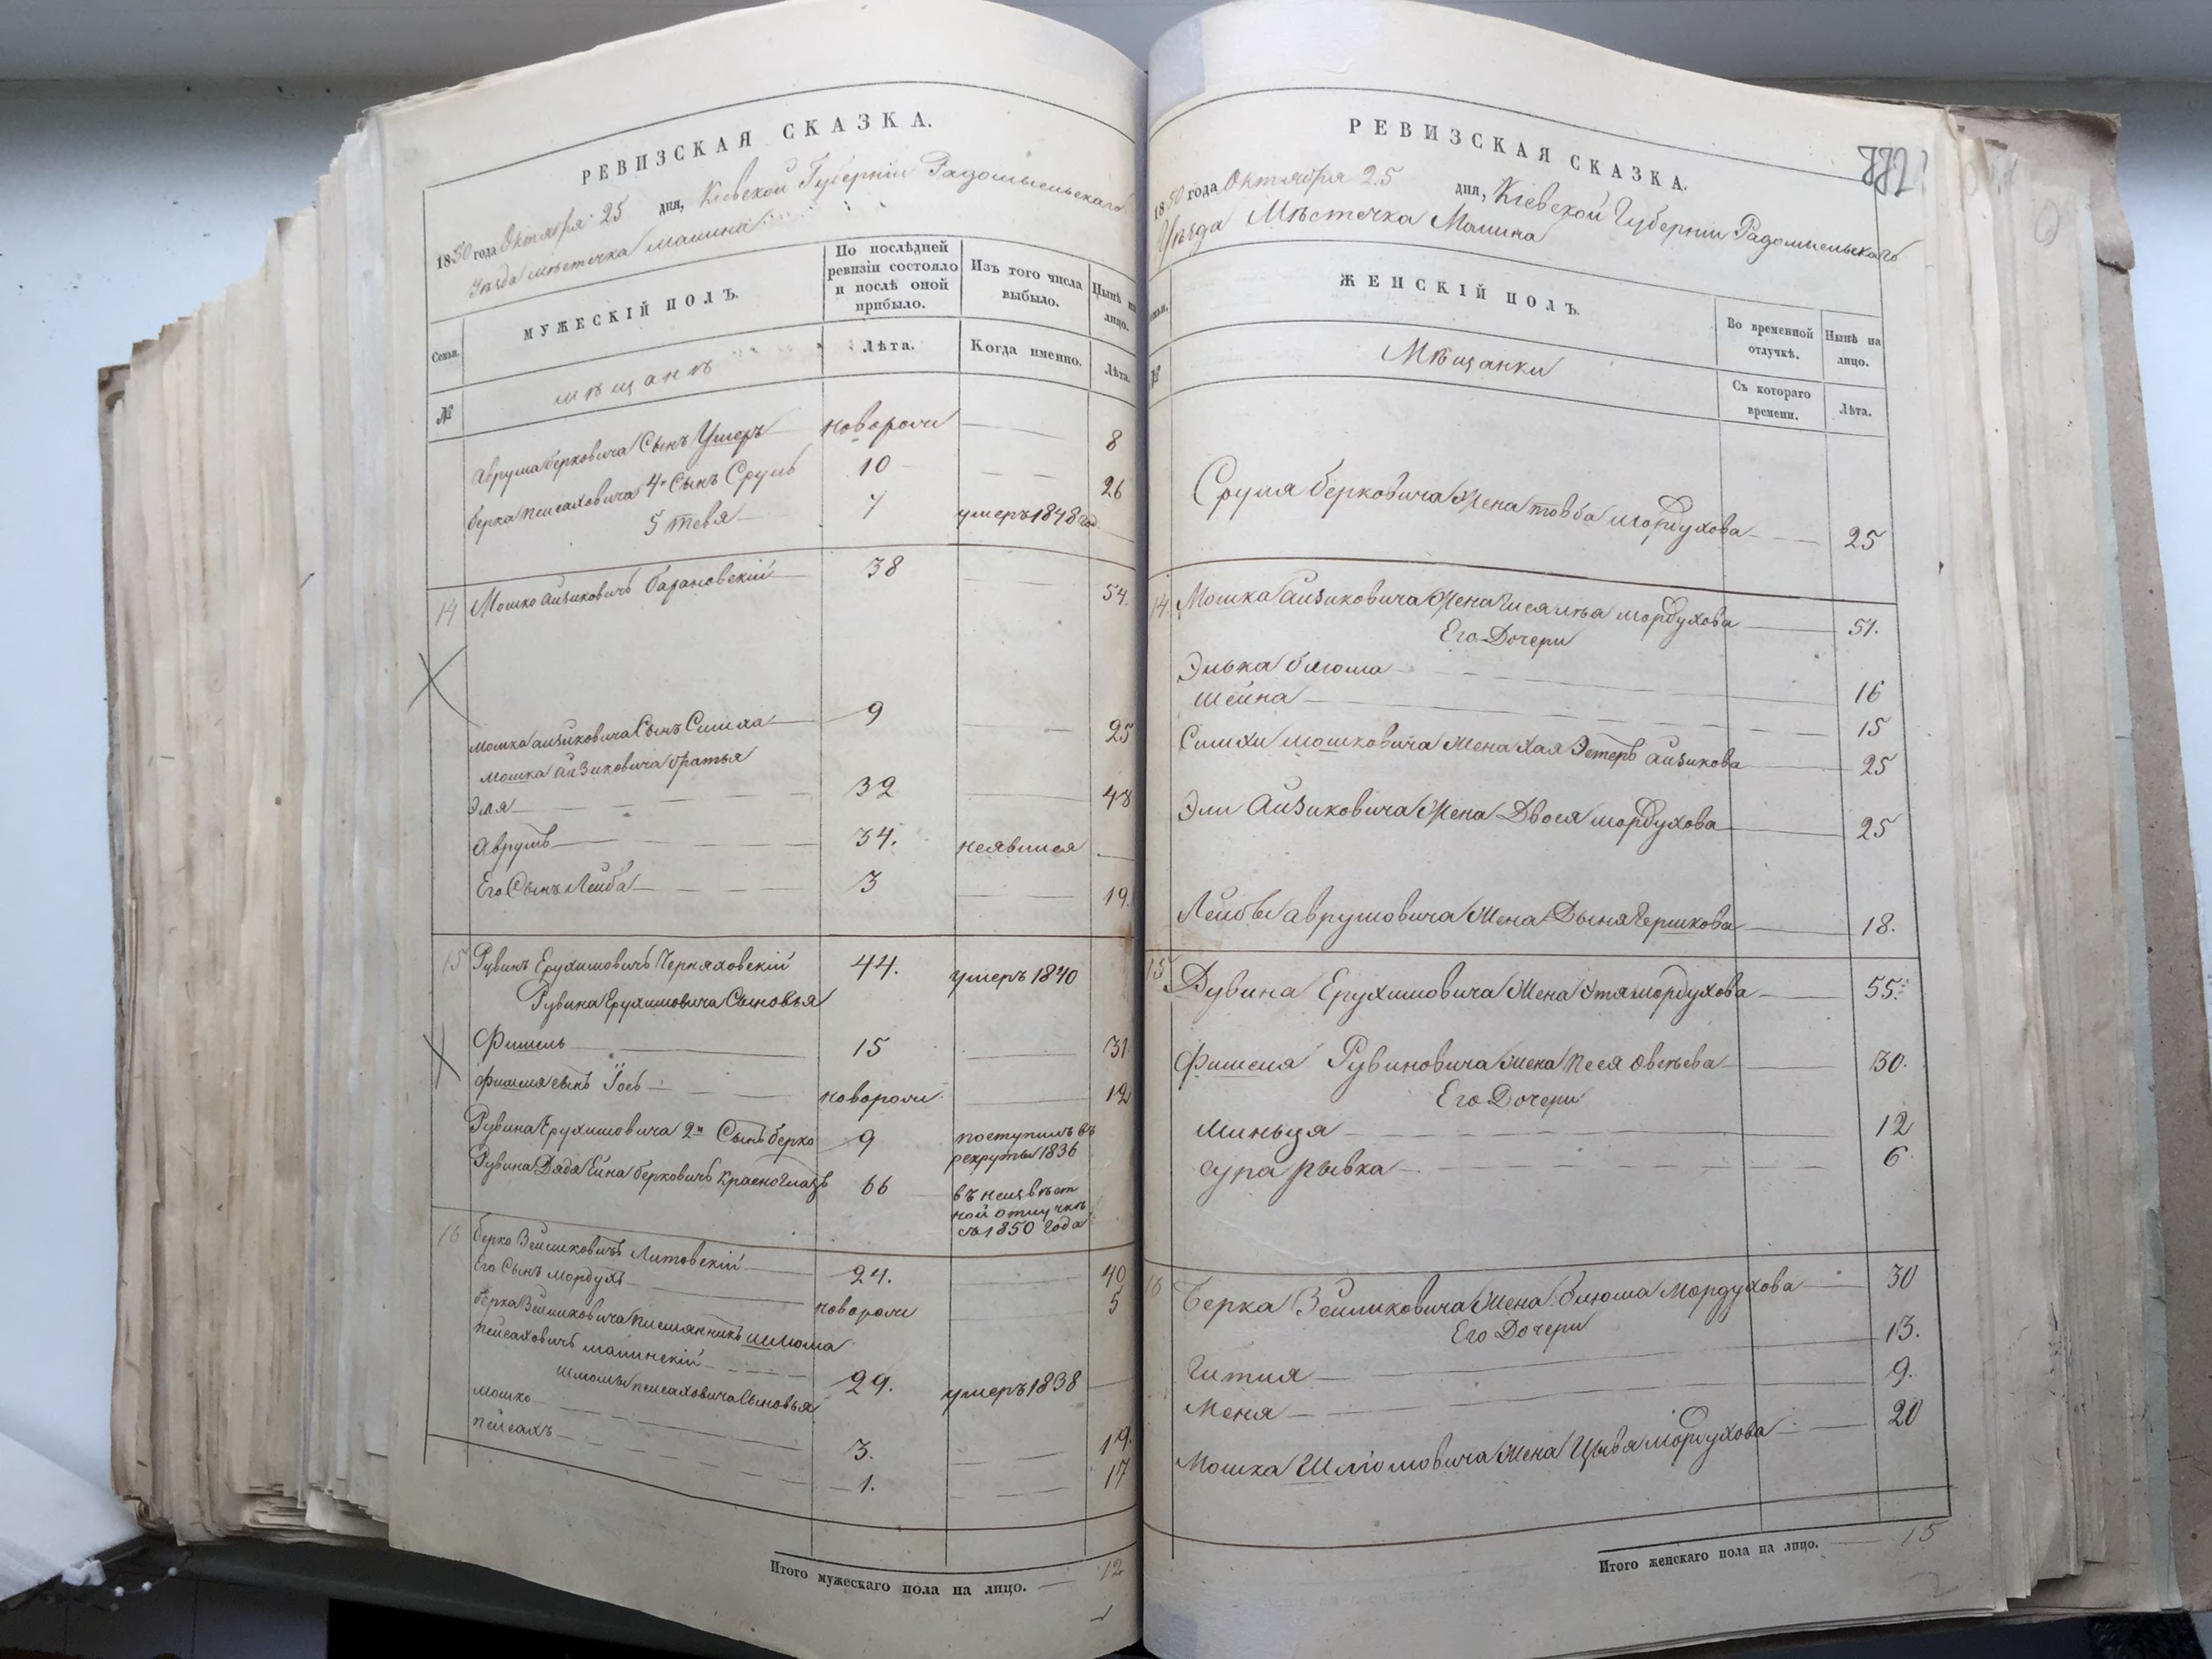 РЕВИЗСКАЯ СКАЗКА.
1850 года Октября 25 дня, Кіевской Губерніи Радомысльскаго
Уѣзда мѣстечка малина
Семьи.
МУЖЕСКІЙ ПОЛЪ.
По послѣдней ревизіи состояло и послѣ оной прибыло.
Изъ того числа выбыло.
Нынѣ на лицо.
№
мѣщанъ
Лѣта.
Когда именно.
Лѣта.
Аврума берковича Сынъ Ушеръ новорож 8
берка пейсаховича 4й Сынъ Сруль 10 26
5 тевя 7 умеръ 1848 год
14 Мошко айзиковичъ барановскій 38 54.
мошка айзиковича Сынъ Симха 9 25
мошка айзиковича братья
Эля 32 48
Аврумъ 34. неявился
Его Сынъ Лейба 3 19.
15 Рувинъ Ерухимовичъ Черняховскій 44. умеръ 1840
Рувина Ерухимовича Сыновья
Фишель 15 31
фишеля сынъ Іось новорож. 12
Рувина Ерухимовича 2й Сынъ берко 9 поступилъ въ
рекруты 1836
Рувина Дядя берковичъ Красноглазъ 66 въ неизвѣст
ной отлучкѣ
съ 1850 года
16 берко Зейликовичъ Литовскій 24. 40
Его Сынъ мордухъ новорож 5
берка Зейликовича племянникъ шлюма
пейсаховичъ малинскій 29. умеръ 1838
шлюмы пейсаховича Сыновья
мошко 3. 19.
пейсахъ 1. 17
Итого мужескаго пола на лицо. 12
РЕВИЗСКАЯ СКАЗКА.
1850 года Октября 25 дня, Кіевской Губерніи Радомысльскаго
Уѣзда Мѣстечка Малина
ЖЕНСКІЙ ПОЛЪ.
Во временной отлучкѣ.
Нынѣ на лицо.
№
Мѣщанки
Съ котораго времени.
Лѣта.
Сруля берковича Жена товба мордухова 25
14 Мошка айзиковича Жена мордухова 51.
Его Дочери
Элька блюма 16
шейна 15
Симхи мошковича Жена хая Эстеръ айзикова 25
Эли Айзиковича Жена Двося мордухова 25
Лейбы аврумовича Жена Дыня Гершкова 18.
15 Рувина Ерухимовича Жена Этя мордухова 55.
Фишеля Рувиновича Жена песя овсѣева 30.
Его Дочери
миньця 12
сура рывка 6
16 Берка Зейликовича Жена блюма Мордухова 30
Его Дочери
Гитля 13.
Меня 9.
Мошка Шлюмовича Жена Цывя мордухова 20
Итого женскаго пола на лицо. 15